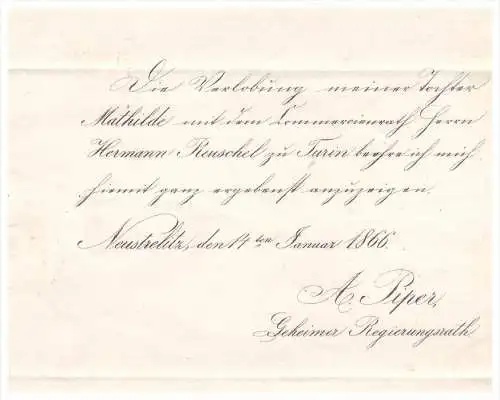 Die Verlobung meiner Tochter
Mathilde mit dem Commercienrath Herrn
Hermann Reuschel zu Turin beehre ich mich
hiemit ganz ergebenst anzuzeigen.
Neustrelitz, den 14ten Januar 1866.
A. Piper,
Geheimer Regierungsrath.